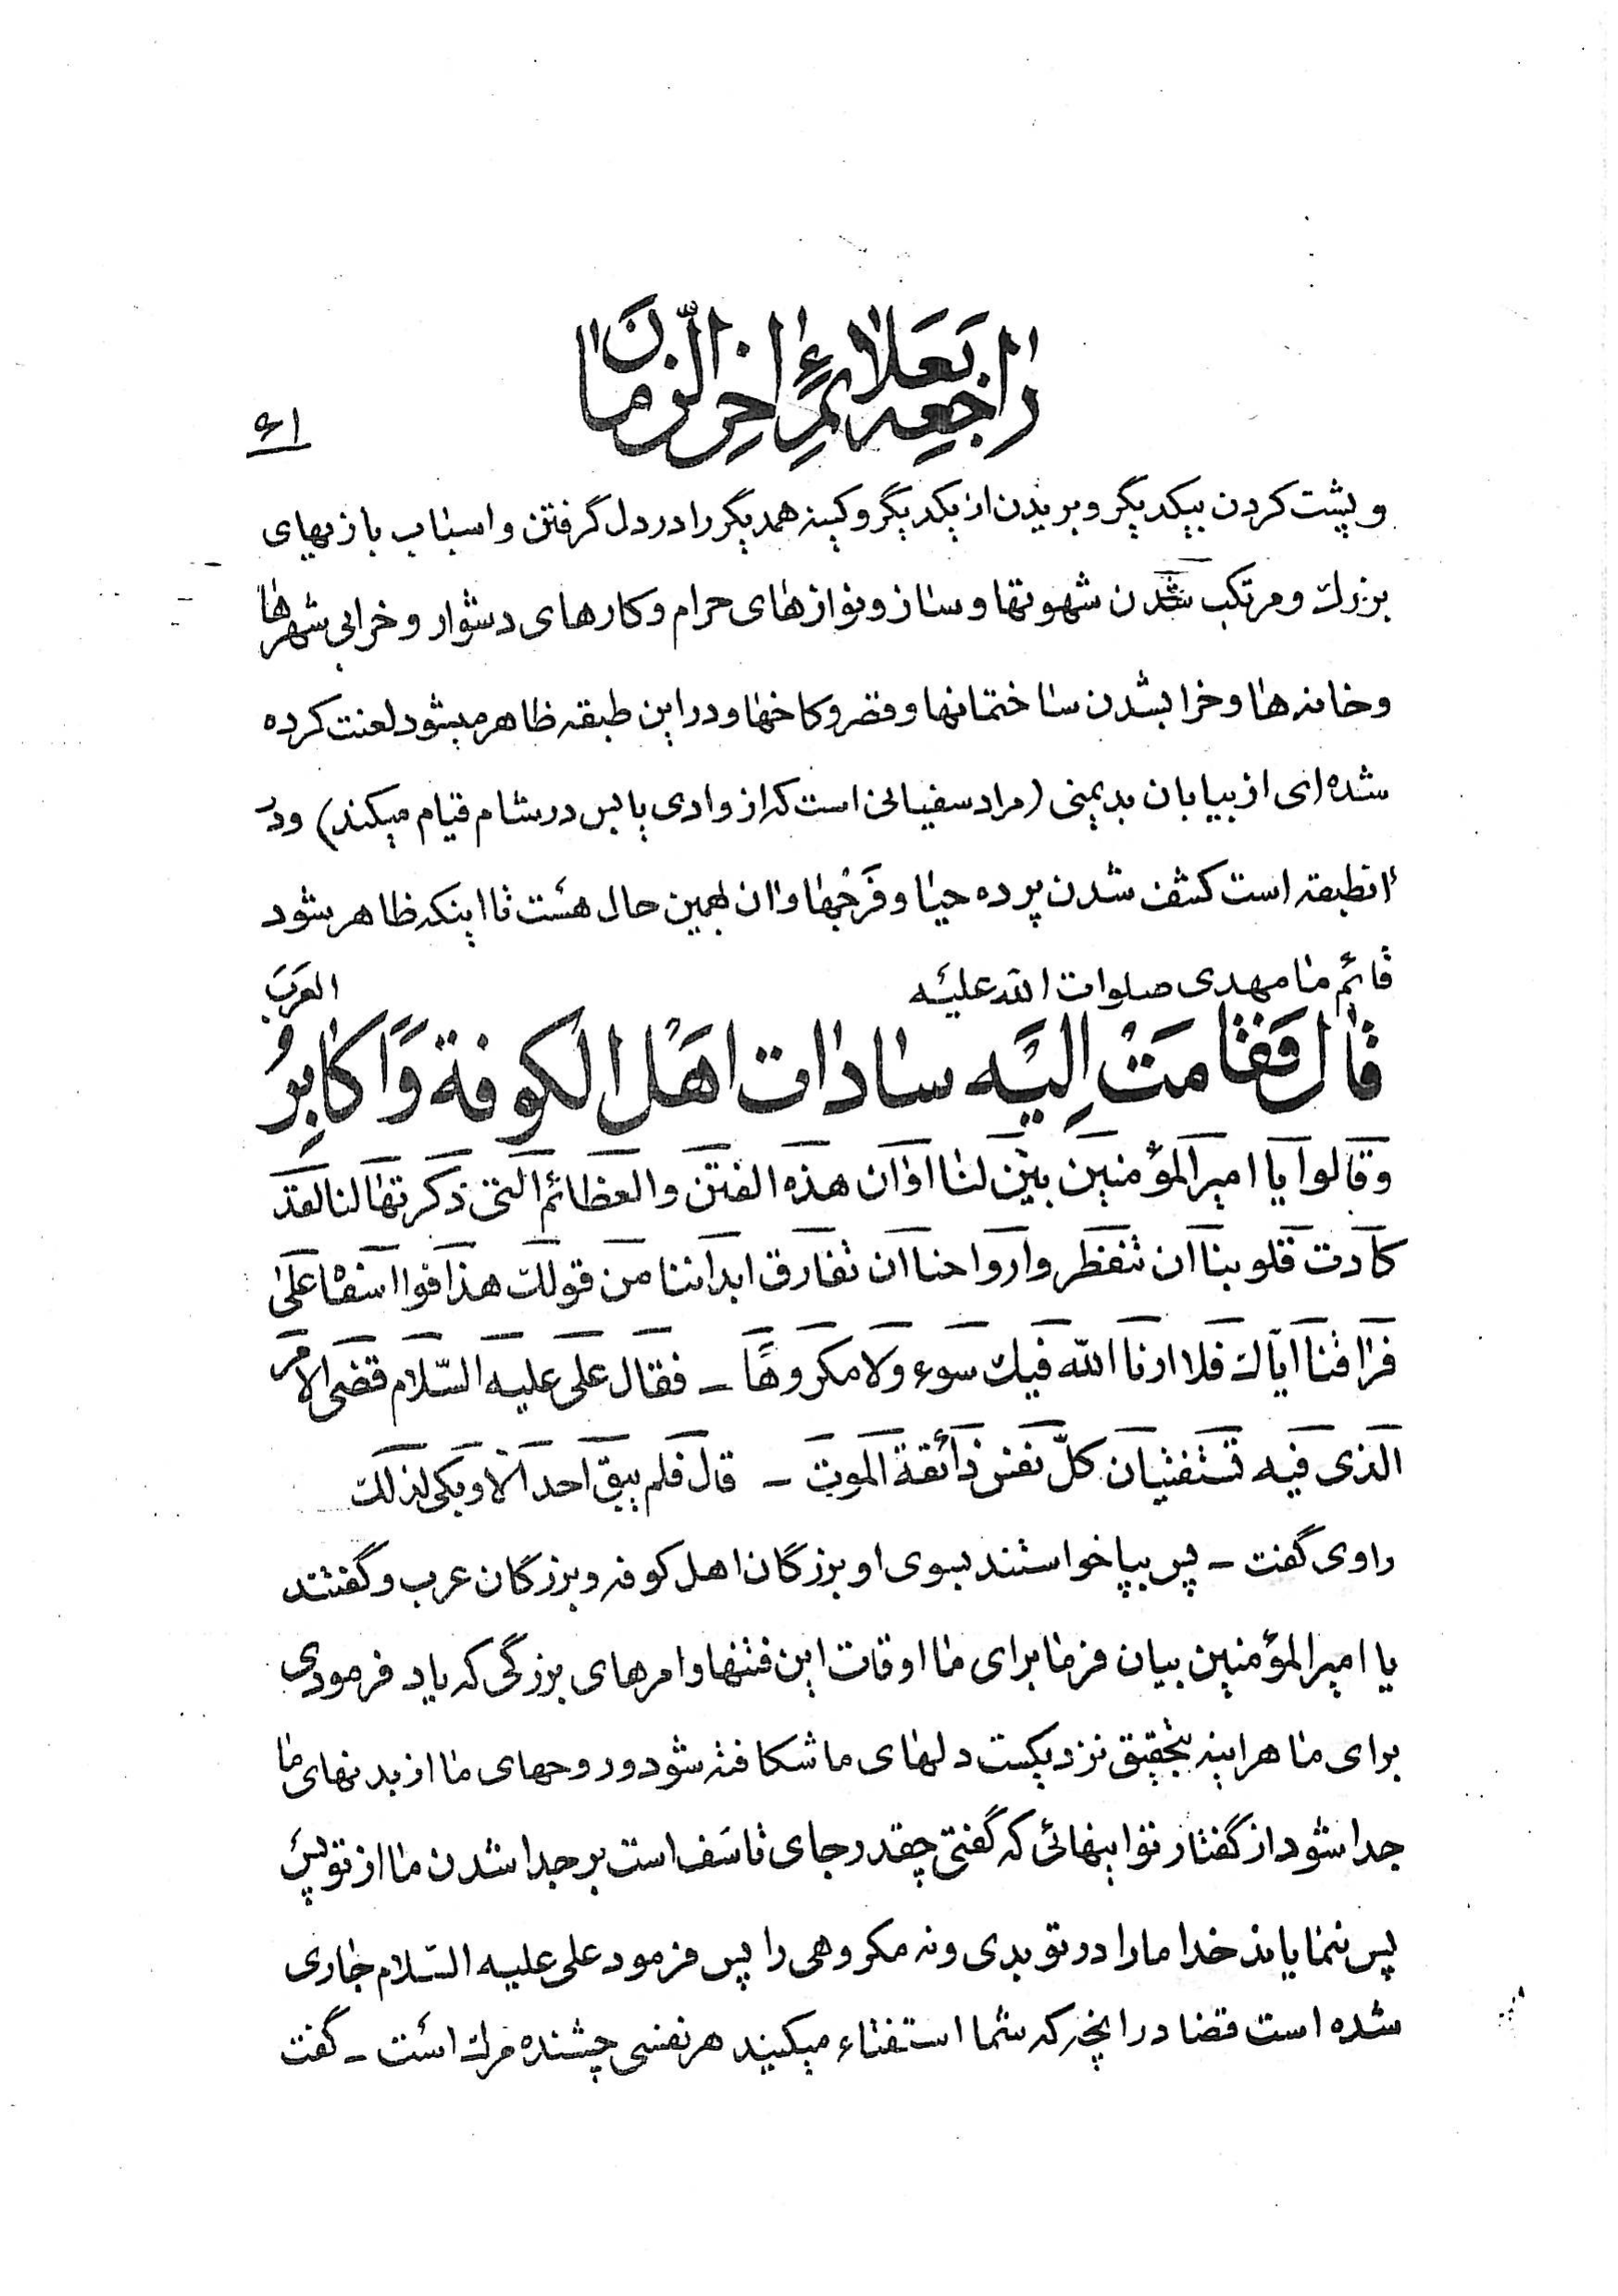 راجعه بعلائم اخر الزمان
۶۱
و پشت کردن بیکدیگر و بریدن از یکدیگر و کینه همدیگر را در دل گرفتن و اسباب بازیهای
بزرك و مرتکب شدن شهوتها و ساز و نوازهای حرام و کارهای دشوار و خرابی شهرها
و خانه ها و خرابشدن ساختمانها و قصر و کاخها و در این طبقه ظاهر میشود لعنت کرده
شده ای از بیابان بدیمنی (مراد سفیانی است که از وادی یابس در شام قیام میکند) و در
انطبقه است کشف شدن پرده حیا و فَرَجها و ان بهمین حال هست تا اینکه ظاهر شود
قائم ما مهدی صلوات الله علیه
قال فَقامَتْ اِلَیْه سادات اهَل الکوفة وَ اکابِرُ العَرَب
و قالوا یا امیر المؤمنین بیّن لنا اوان هذه الفتن و العظائم التی ذکرتها لنا لقد
کادت قلوبنا ان تنفطر و ارواحنا ان تفارق ابداننا من قولك هذا فوا اسفا علی
فراقنا ایاك فلا ارنا الله فیك سوء و لا مکروهًا ـ فقال علی علیه السّلام قضی الامر
الذی فیه تستفتیان کلّ نفس ذائقة الموت ـ قال فلم یبق احد الّا و بکی لذلك
راوی گفت ـ پس بپا خواستند بسوی او بزرگان اهل کوفه و بزرگان عرب و گفتند
یا امیر المؤمنین بیان فرما برای ما اوقات این فتنها و امرهای بزرگی که یاد فرمودی
برای ما هراینه بتحقیق نزدیکست دلهای ما شکافته شود و روحهای ما از بدنهای ما
جدا شود از گفتار تو اینهائی که گفتی چقدر جای تاسّف است بر جدا شدن ما از تو پس
پس ننمایاند خدا ما را در تو بدی و نه مکروهی را پس فرمود علی علیه السّلام جاری
شده است قضا در انچه که شما استفتاء میکنید هر نفسی چشنده مرك است ـ گفت